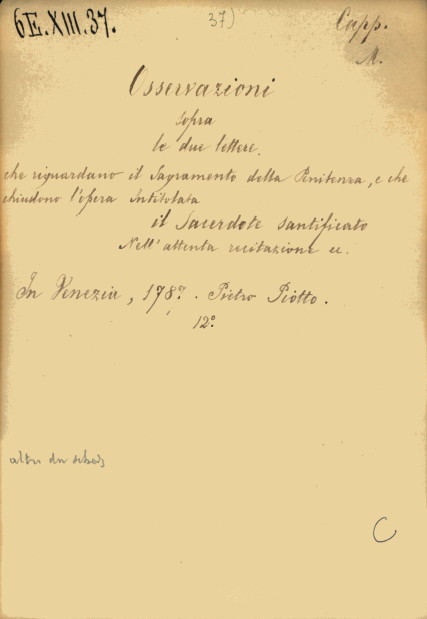 6E.XIII.37.
37)
Capp.
M.
Osservazioni
sopra
le due lettere.
che riguardano il Sagramento della Penitenza, e che
chiudono l'opera Intitolata
il Sacerdote santificato
Nell'attenta recitazione ec.
In Venezia, 1787. Pietro Piotto.
12º
altre due
C